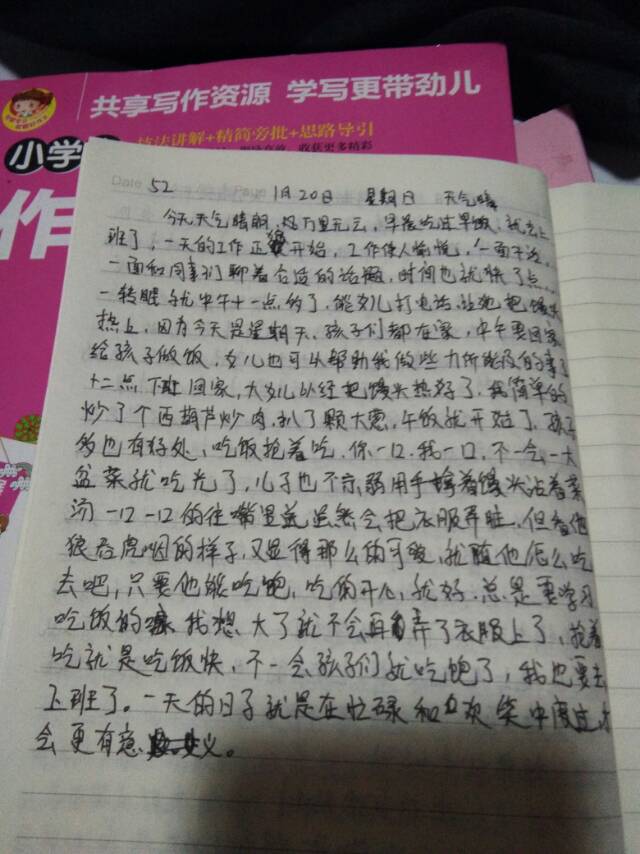 共享写作资源 学写更带劲儿
技法讲解+精简旁批+思路导引
收获更多精彩
小学
作
Date 52 Page 1月20日 星期日 天气晴
今天天气晴朗,万里无云,早晨吃过早饭,就去上
班了,一天的工作正式开始,工作使人愉悦,一面干活,
一面和同事们聊着合适的话题,时间也就快了点,
一转眼就中午十一点多了,给女儿打电话,让她把馒头
热上,因为今天是星期天,孩子们都在家,中午要回家
给孩子做饭,女儿也可以帮助我做些力所能及的事了
十二点下班回家,大女儿以经把馒头热好了,我简单的
炒了个西葫芦炒肉,扒了颗大葱,午饭就开始了,孩子
多也有好处,吃饭抢着吃,你一口,我一口,不一会一大
盆菜就吃光了,儿子也不示弱用手拿着馒头沾着菜
汤一口一口的往嘴里送虽然会把衣服弄脏,但看他
狼吞虎咽的样子,又显得那么的可爱,就随他怎么吃
去吧,只要他能吃饱,吃的开心,就好,总是要学习
吃饭的嘛 我想 大了就不会再弄了衣服上了,抢着
吃就是吃饭快,不一会孩子们就吃饱了,我也要去
上班了。一天的日子就是在忙碌和欢笑中度过,才
会更有意义。